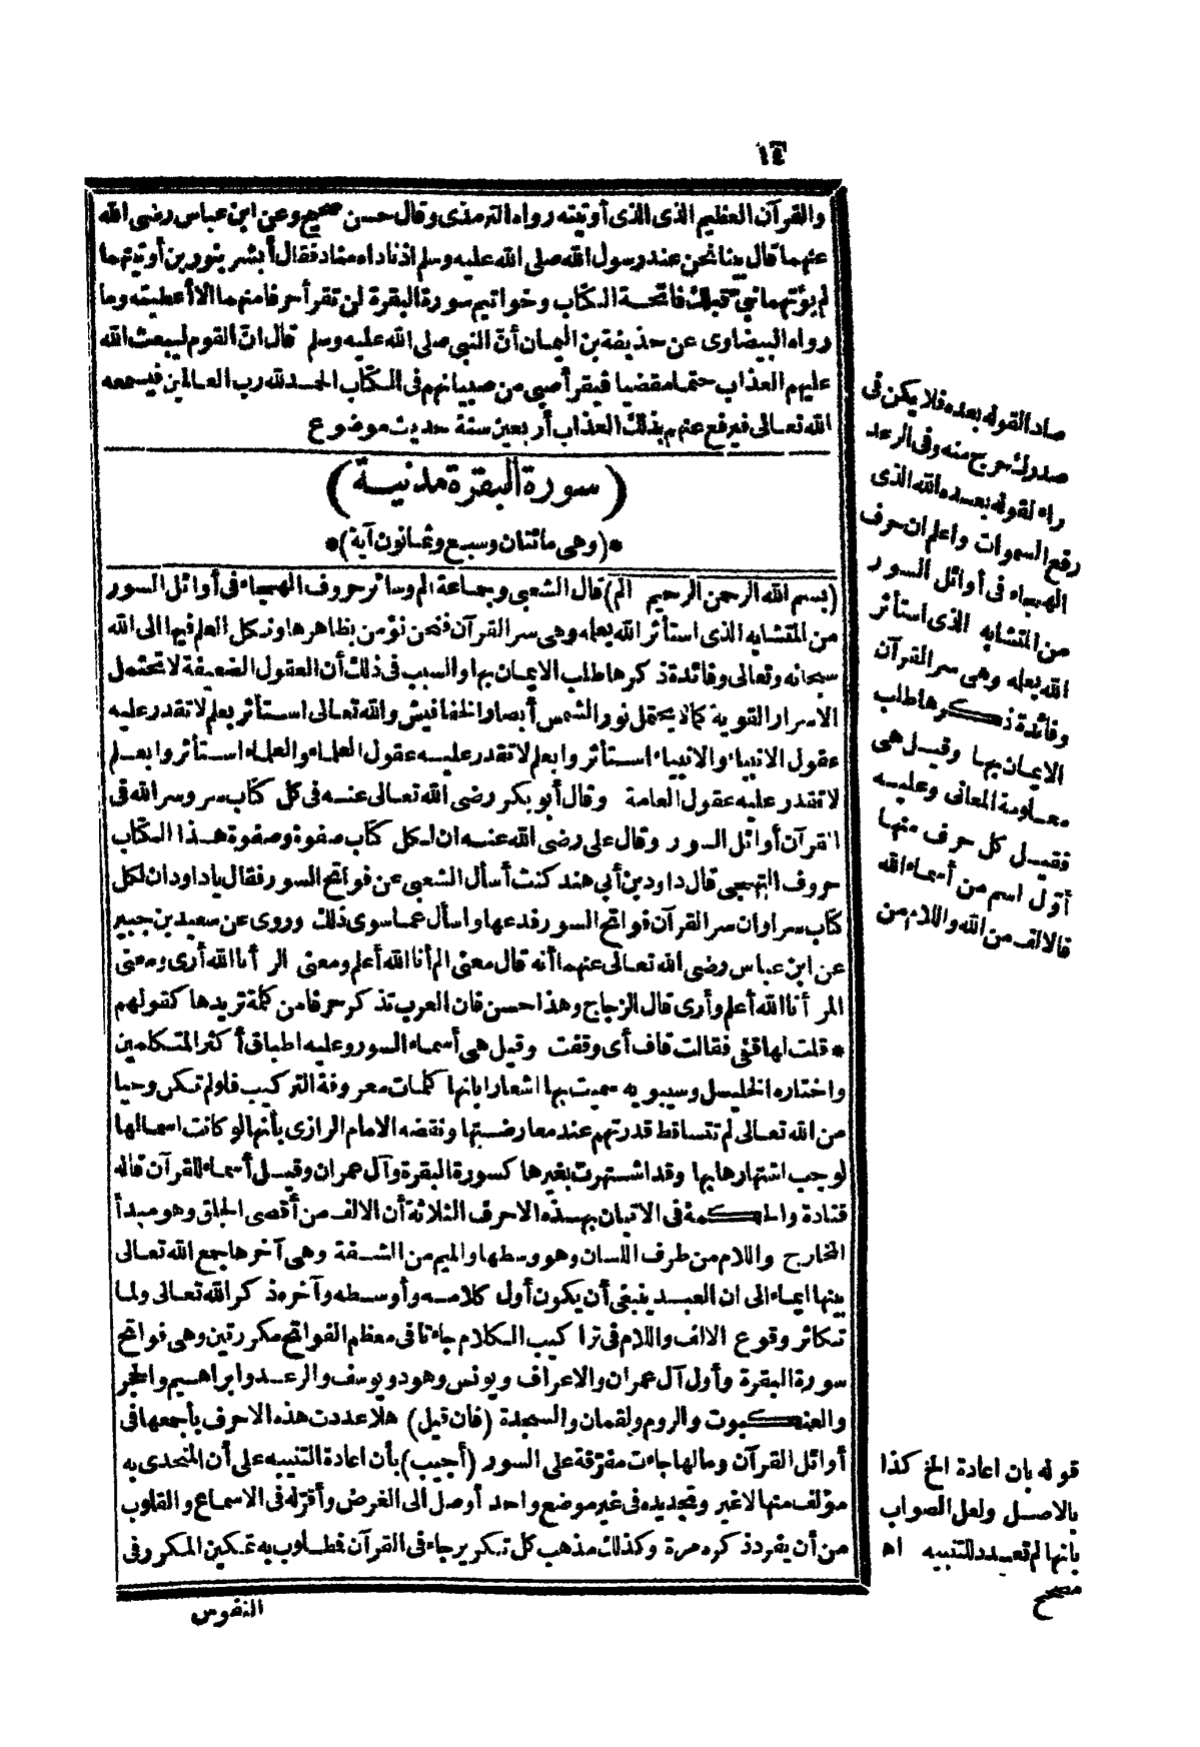 ١٤
والقرآن العظيم الذى الذى أوتيته رواه الترمذى وقال حسن صحيح وعن ابن عباس رضى الله
عنهما قال بينا نحن عند رسول الله صلى الله عليه وسلم اذ ناداه مناد فقال أبشر بنورين أوتيتهما
لم يؤتهما نبىّ قبلك فاتحة الكتاب وخواتيم سورة البقرة لن تقرأ حرفا منهما الا أعطيته وما
رواه البيضاوى عن حذيفة بن اليمان أنّ النبى صلى الله عليه وسلم قال انّ القوم ليبعث الله
عليهم العذاب حتما مقضيا فيقرأ صبى من صبيانهم فى الكتاب الحمد لله رب العالمين فيسمعه
الله تعالى فيرفع عنهم بذلك العذاب أربعين سنة حديث موضوع
(سورة البقرة مدنية)
*(وهى مائتان وسبع وثمانون آية)*
(بسم الله الرحمن الرحيم الم) قال الشعبى وجماعة الم وسائر حروف الهجاء فى أوائل السور
من المتشابه الذى استأثر الله بعلمه وهى سر القرآن فنحن نؤمن بظاهرها ونكل العلم فيها الى الله
سبحانه وتعالى وفائدة ذكرها طلب الايمان بها والسبب فى ذلك أن العقول الضعيفة لا تحتمل
الاسرار القوية كما لا يحتمل نور الشمس أبصار الخفافيش والله تعالى استأثر بعلم لا تقدر عليه
عقول الانبياء والانبياء استأثروا بعلم لا تقدر عليه عقول العلماء والعلماء استأثروا بعلم
لا تقدر عليه عقول العامة وقال أبو بكر رضى الله تعالى عنه فى كل كتاب سر وسر الله فى
القرآن أوائل السور وقال على رضى الله عنه ان لكل كتاب صفوة وصفوة هذا الكتاب
حروف التهجى قال داود بن أبى هند كنت أسأل الشعبى عن فواتح السور فقال ياداود ان لكل
كتاب سرا وان سر القرآن فواتح السور فدعها واسأل عما سوى ذلك وروى عن سعيد بن جبير
عن ابن عباس رضى الله تعالى عنهما أنه قال معنى الم أنا الله أعلم ومعنى الر أنا الله أرى ومعنى
المر أنا الله أعلم وأرى قال الزجاج وهذا حسن فان العرب تذكر حرفا من كلمة تريدها كقولهم
* قلت لها قفى فقالت قاف أى وقفت وقيل هى أسماء السور وعليه اطباق أكثر المتكلمين
واختاره الخليل وسيبويه سميت بها اشعارا بانها كلمات معروفة التركيب فلو لم تكن وحيا
من الله تعالى لم تتساقط قدرتهم عند معارضتها ونقضه الامام الرازى بأنها لو كانت اسما لها
لوجب اشتهارها بها وقد اشتهرت بغيرها كسورة البقرة وآل عمران وقيل أسماء للقرآن قاله
قتادة والحكمة فى الاتيان بهذه الاحرف الثلاثة أن الالف من أقصى الحلق وهو مبدأ
المخارج واللام من طرف اللسان وهو وسطها والميم من الشفة وهى آخرها جمع الله تعالى
بينها ايماء الى ان العبد ينبغى أن يكون أول كلامه وأوسطه وآخره ذكر الله تعالى ولما
تكاثر وقوع الالف واللام فى تراكيب الكلام جاءتا فى معظم الفواتح مكررتين وهى فواتح
سورة البقرة وأول آل عمران والاعراف ويونس وهود ويوسف والرعد وابراهيم والحجر
والعنكبوت والروم ولقمان والسجدة (فان قيل) هلا عددت هذه الاحرف بأجمعها فى
أوائل القرآن وما لها جاءت مفرّقة على السور (أجيب) بأن اعادة التنبيه على أن المتحدى به
مؤلف منها لا غير وتجديده فى غير موضع واحد أوصل الى الغرض وأقرّ له فى الاسماع والقلوب
من أن يفرد ذكره مرة وكذلك مذهب كل تكرير جاء فى القرآن فطلوب به تمكين المكرر فى
النفوس
صاد القوله بعده فلا يكن فى
صدرك حرج منه وفى الرعد
راء لقوله بعده الله الذى
رفع السموات واعلم ان حرف
الهجاء فى أوائل السور
من المتشابه الذى استأثر
الله بعلمه وهى سر القرآن
وفائدة ذكرها طلب
الايمان بها وقيل هى
معلومة المعانى وعليه
فقيل كل حرف منها
أوّل اسم من أسماء الله
فالالف من الله واللام من
قوله بان اعادة الخ كذا
بالاصل ولعل الصواب
بانها لم تعدد للتنبيه اه
مصحح